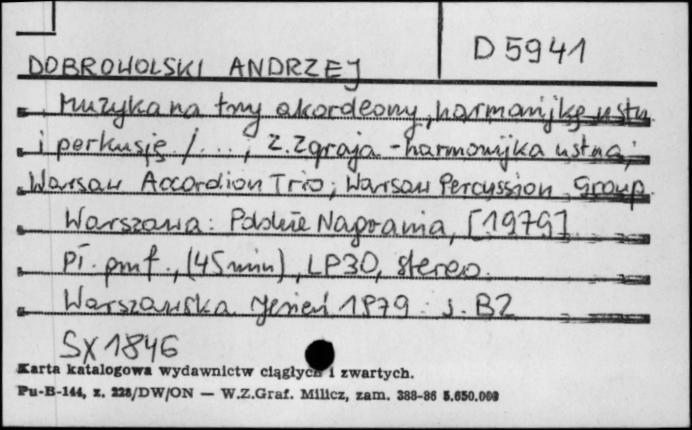 D 5941
DOBROWOLSKI ANDRZEJ
Muzyka na trzy akordeony, harmonijkę ustn.
i perkusję /...; Z. Zgraja - harmonijka ustna;
Warsaw Accordion Trio; Warsaw Percussion Group.
Warszawa: Polskie Nagrania, [1979]
Pł. pmf., (45 min), LP30, stereo.
Warszawska Jesień 1979. s. B2
SX 1846
Karta katalogowa wydawnictw ciągłych i zwartych.
Pu-B-144, z. 228/DW/ON — W.Z.Graf. Milicz, zam. 388-86 5.650.000